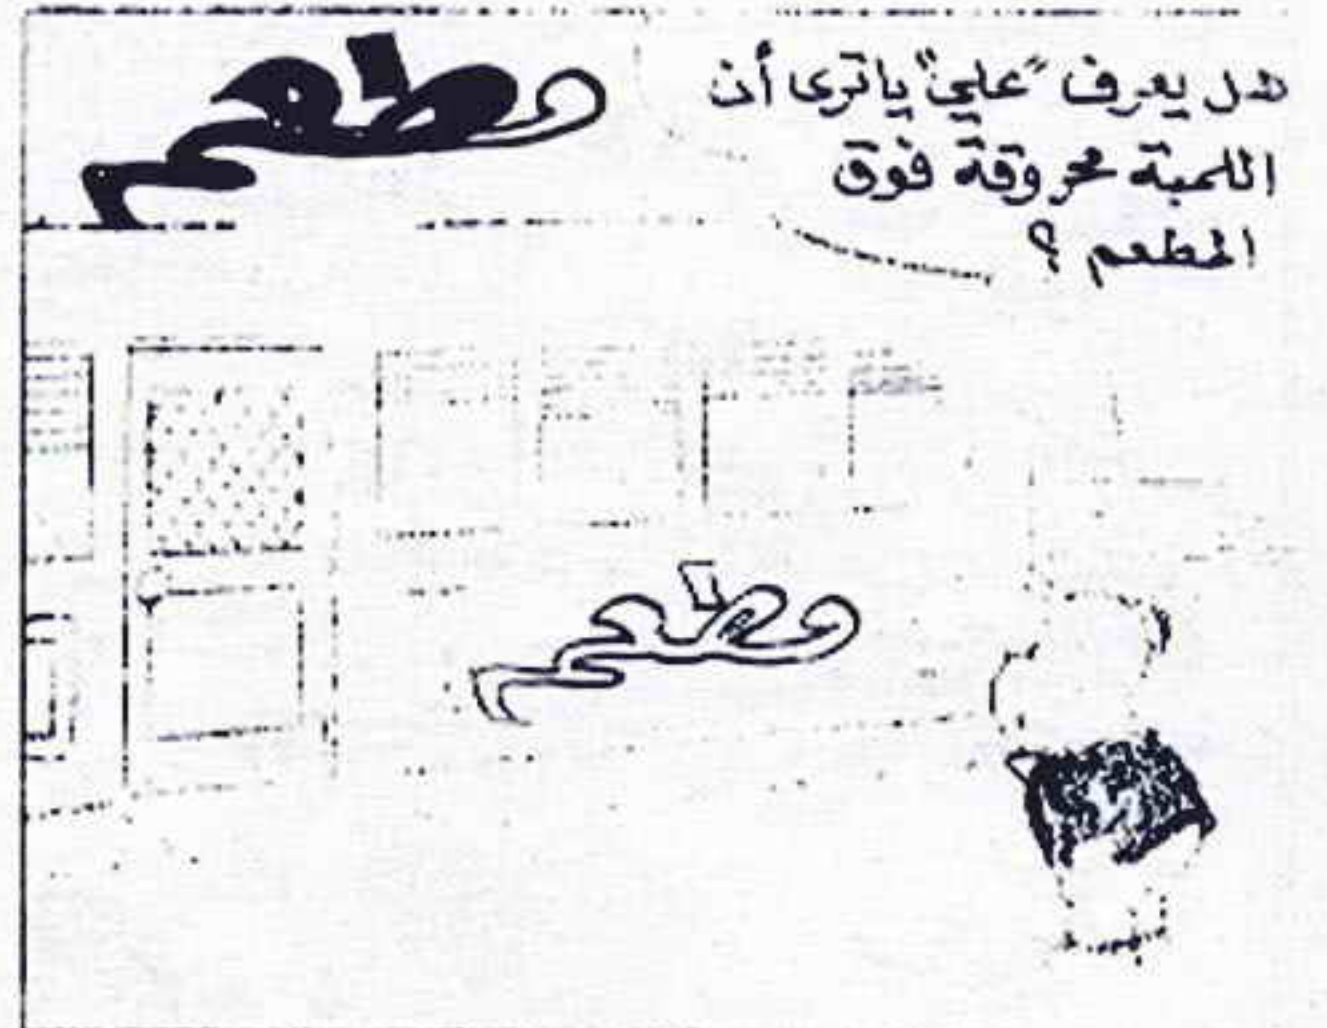 هل يعرف "علي" يا ترى أن
اللمبة محروقة فوق
المطعم ؟
مطعم
مطعم